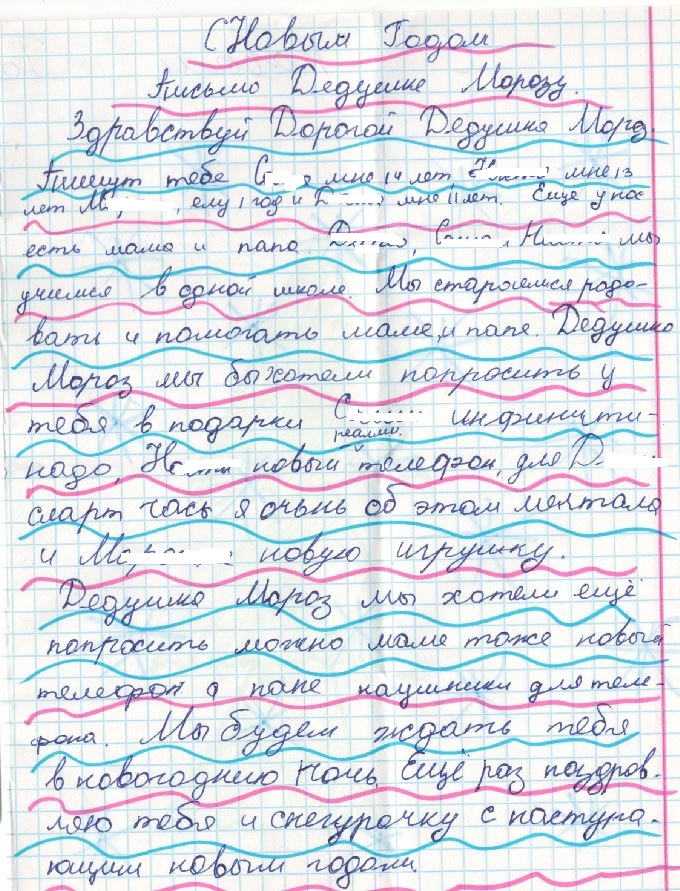 С Новым Годом
Письмо Дедушке Морозу.
Здравствуй Дорогой Дедушка Мороз
Пишут тебе С я мне 14 лет, мне 13
лет М , ему 1 год и мне 11 лет. Еще у нас
есть мама и папа. , , мы
учимся в одной школе. Мы стараемся радо-
вать и помогать маме, и папе. Дедушка
Мороз мы бы хотели попросить у
тебя в подарки С инфинити-
реалми.
надо, На новый телефон, для Д
смарт часы я очень об этом мечтала
и М новую игрушку.
Дедушка Мороз мы хотели ещё
попросить можно маме тоже новый
телефон а папе наушники для теле-
фона. Мы будем ждать тебя
в новогоднию ночь. Ещё раз поздров-
ляю тебя и снегурачку с наступа-
ющим новым годом.